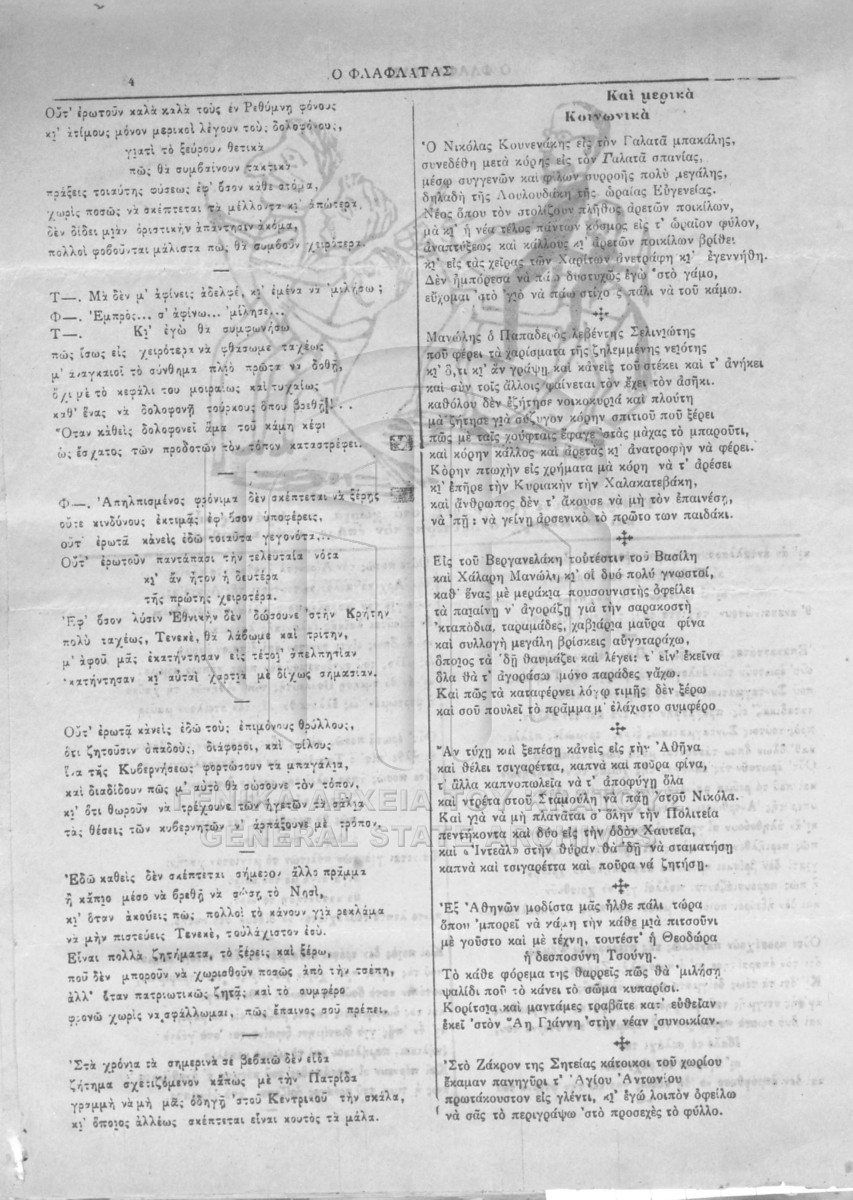 4
Ο ΦΛΑΦΛΑΤΑΣ
Οὔτ' ἐρωτοῦν καλὰ καλὰ τοὺς ἐν Ρεθύμνῃ φόνους
κι' ἀτίμους μόνον μερικοὶ λέγουν τοὺς δολοφόνους,
γιατὶ τὸ ξεύρουν θετικὰ
πῶς θὰ συμβαίνουν τακτικὰ
πράξεις τοιαύτης φύσεως ἐφ' ὅσον κάθε στόμα,
χωρὶς ποσῶς νὰ σκέπτεται τὰ μέλλοντα κι' ἀπώτερα
δὲν δίδει μιὰν ὁριστικὴν ἀπάντησιν ἀκόμα,
πολλοὶ φοβοῦνται μάλιστα πῶς θὰ συμβοῦν χειρότερα.
—
Τ—. Μὰ δὲν μ' ἀφίνεις ἀδελφέ, κι' ἐμένα νὰ 'μιλήσω;
Φ—. Ἐμπρὸς... σ' ἀφίνω... 'μίλησε...
Τ—. Κι' ἐγὼ θὰ συμφωνήσω
πῶς ἴσως εἰς χειρότερα νὰ φθάσωμε ταχέως
μ' ἀναγκαιοῖ τὸ σύνθημα πλιὸ πρῶτα νὰ δοθῇ,
ὄχι μὲ τὸ κεφάλι του μοιραίως καὶ τυχαίως
καθ' ἕνας νὰ δολοφονῇ τούρκους ὅπου βρεθῇ!..
Ὅταν καθεὶς δολοφονεῖ ἅμα τοῦ κάμῃ κέφι
ὡς ἔσχατος τῶν προδοτῶν τὸν τόπον καταστρέφει.
—
Φ—. Ἀπηλπισμένος φρόνιμα δὲν σκέπτεται νὰ ξέρῃς
οὔτε κινδύνους ἐκτιμᾷς ἐφ' ὅσον ὑποφέρεις,
οὔτ' ἐρωτᾷ κανεὶς ἐδῶ τοιαῦτα γεγονότα,..
Οὔτ' ἐρωτοῦν παντάπασι τὴν τελευταία νότα
κι' ἂν ἦτον ἡ δευτέρα
τῆς πρώτης χειροτέρα.
Ἐφ' ὅσον λύσιν Ἐθνικὴν δὲν δώσουνε 'στὴν Κρήτην
πολὺ ταχέως, Τενεκέ, θὰ λάβωμε καὶ τρίτην,
μ' ἀφοῦ μᾶς ἐκατήντησαν εἰς τέτοι' ἀπελπησίαν
'κατήντησαν κι' αὐταὶ χαρτιὰ μὲ δίχως σημασίαν.
—
Οὔτ' ἐρωτᾷ κανεὶς ἐδῶ τοὺς ἐπιμόνους θρύλλους,
ὅτι ζητοῦσιν ὀπαδοὺς, διάφοροι, καὶ φίλους
ἵνα τῆς Κυβερνήσεως φορτώσουν τὰ μπαγάλια,
καὶ διαδίδουν πῶς μ' αὐτὸ θὰ σώσουνε τὸν τόπον,
κι' ὅτι θωροῦν νὰ τρέχουνε τῶν ἡγετῶν τὰ σάλια
τὰς θέσεις τῶν κυβερνητῶν ν' ἁρπάξουνε μὲ τρόπον.
—
Ἐδῶ καθεὶς δὲν σκέπτεται σήμερον ἄλλο πρᾶμμα
ἢ κάποιο μέσο νὰ βρεθῇ νὰ σώσῃ τὸ Νησί,
κι' ὅταν ἀκούεις πῶς πολλοὶ τὸ κάνουν γιὰ ρεκλάμα
νὰ μὴν πιστεύεις Τενεκέ, τοὐλάχιστον ἐσύ.
Εἶναι πολλὰ ζητήματα, τὸ ξέρεις καὶ ξέρω,
ποῦ δὲν μποροῦν νὰ χωρισθοῦν ποσῶς ἀπὸ τὴν τσέπη,
ἀλλ' ὅταν πατριωτικῶς ζητᾷς καὶ τὸ συμφέρο
φρονῶ χωρὶς νὰ σφάλλωμαι, πῶς ἔπαινος σοῦ πρέπει.
—
Στὰ χρόνια τὰ σημερινὰ σὲ βεβαιῶ δὲν εἶδα
ζήτημα σχετιζόμενον κάπως μὲ τὴν Πατρίδα
γραμμὴ νὰ μὴ μᾶς ὁδηγῇ 'στοῦ Κεντρικοῦ τὴν σκάλα,
κι' ὅποιος ἀλλέως σκέπτεται εἶναι κουτὸς τὰ μάλα.
Καὶ μερικὰ
Κοινωνικὰ
Ὁ Νικόλας Κουνενάκης εἰς τὸν Γαλατᾶ μπακάλης,
συνεδέθη μετὰ κόρης εἰς τὸν Γαλατᾶ σπανίας,
μέσῳ συγγενῶν καὶ φίλων συρροῆς πολὺ μεγάλης,
δηλαδὴ τῆς Λουλουδάκη τῆς ὡραίας Εὐγενείας.
Νέος ὅπου τὸν στολίζουν πλῆθος ἀρετῶν ποικίλων,
μὰ κι' ἡ νέα τέλος πάντων κόσμος εἰς τ' ὡραῖον φύλον,
ἀναπτύξεως καὶ κάλλους κι' ἀρετῶν ποικίλων βρίθει
κι' εἰς τὰς χεῖρας τῶν Χαρίτων ἀνετράφη κι' ἐγεννήθη.
Δὲν ἠμπόρεσα νὰ πάω δυστυχῶς ἐγὼ 'στὸ γάμο,
εὔχομαι 'στὸ γιὸ νὰ πάω στίχους πάλι νὰ τοῦ κάμω.
Μανώλης ὁ Παπαδερὸς λεβέντης Σελινιώτης
ποῦ φέρει τὰ χαρίσματα τῆς ζηλεμμένης νειότης
κι' ὅ,τι κι' ἂν γράψῃ καὶ κανεὶς τοῦ στέκει καὶ τ' ἀνήκει
καὶ σὺν τοῖς ἄλλοις φαίνεται τὸν ἔχει τὸν ἀσῆκι.
καθόλου δὲν ἐζήτησε νοικοκυριὰ καὶ πλούτη
μὰ ζήτησε γιὰ σύζυγον κόρην σπιτιοῦ ποῦ ξέρει
πῶς μὲ ταῖς χούφταις ἔφαγε 'στὰς μάχας τὸ μπαροῦτι,
καὶ κόρην κάλλος καὶ ἀρετὰς κι' ἀνατροφὴν νὰ φέρει.
Κόρην πτωχὴν εἰς χρήματα μὰ κόρη νὰ τ' ἀρέσει
κι' ἐπῆρε τὴν Κυριακὴν τὴν Χαλακατεβάκη,
καὶ ἄνθρωπος δὲν τ' ἄκουσε νὰ μὴ τὸν ἐπαινέσῃ,
νὰ 'πῇ: νὰ γείνῃ ἀρσενικὸ τὸ πρῶτο των παιδάκι.
Εἰς τοῦ Βεργανελάκη τοὐτέστιν τοῦ Βασίλη
καὶ Χάλαρη Μανώλη, κι' οἱ δυὸ πολὺ γνωστοί,
καθ' ἕνας μὲ μεράκια πουσουνιστὴς ὀφείλει
τὰ παιαίνῃ ν' ἀγοράζῃ γιὰ τὴν σαρακοστὴ
'κταπόδια, ταραμάδες, χαβιάρια μαῦρα φίνα
καὶ συλλογὴ μεγάλη βρίσκεις αὐγοτάραχο,
ὅποιος τὰ 'δῇ θαυμάζει καὶ λέγει: τ' εἶν' ἐκεῖνα
ὅλα θὰ τ' ἀγοράσω μόνο παράδες νἄχω.
Καὶ πῶς τὰ καταφέρνει λόγῳ τιμῆς δὲν ξέρω
καὶ σοῦ πουλεῖ τὸ πρᾶμμα μ' ἐλάχιστο συμφέρο
Ἂν τύχῃ καὶ ξεπέσῃ κανεὶς εἰς τὴν Ἀθῆνα
καὶ θέλει τσιγαρέττα, καπνὰ καὶ ποῦρα φίνα,
τ' ἄλλα καπνοπωλεῖα νὰ τ' ἀποφύγῃ ὅλα
καὶ ντρέτα στοῦ Σταμούλη νὰ πάῃ 'στοῦ Νικόλα.
Καὶ γιὰ νὰ μὴ πλανᾶται σ' ὅλην τὴν Πολιτεία
πεντήκοντα καὶ δύο εἰς τὴν ὁδὸν Χαυτεῖα,
καὶ «Ἰντεὰλ» στὴν θύραν θὰ 'δῇ νὰ σταματήσῃ
καπνὰ καὶ τσιγαρέττα καὶ ποῦρα νὰ ζητήσῃ.
Ἐξ Ἀθηνῶν μοδίστα μᾶς ἦλθε πάλι τώρα
ὅπου 'μπορεῖ νὰ κάμῃ τὴν κάθε μιὰ πιτσοῦνι
μὲ γοῦστο καὶ μὲ τέχνη, τουτέστ' ἡ Θεοδώρα
ἡ δεσποσύνη Τσούνη.
Τὸ κάθε φόρεμα της θαρρεῖς πῶς θὰ 'μιλήσῃ
ψαλίδι ποῦ τὸ κάνει τὸ σῶμα κυπαρίσι.
Κορίτσια καὶ μαντάμες τραβᾶτε κατ' εὐθεῖαν
ἐκεῖ 'στὸν Ἅη Γιάννη 'στὴν νέαν συνοικίαν.
Στὸ Ζάκρον της Σητείας κάτοικοι τοῦ χωρίου
ἔκαμαν πανηγῦρι τ' Ἁγίου Ἀντωνίου
πρωτάκουστον εἰς γλέντι, κι' ἐγὼ λοιπὸν ὀφείλω
νὰ σᾶς τὸ περιγράψω 'στὸ προσεχὲς τὸ φύλλο.